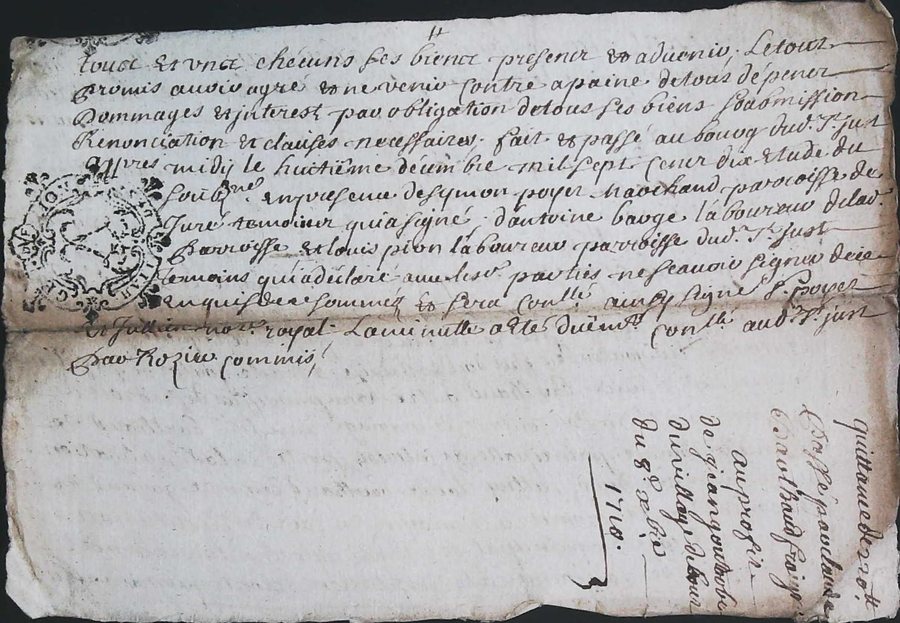 tous et uns chécuns ses biens presens et advenir. Letout
promis avoir agré et ne venir contre apaine detous dépens
Dommages et interest par obligation detous ses biens soubmission
Renonciation et clauses necessaires. fait et passé au bourg dud. St just
appres midy le huitième décembre mil sept cens dix Etude du
soubsné. en presence desymon poyet Marchand parroisse de
Juré temoins quiasigné. dantoine barge laboureur delad.
parroisse et louis pion laboureur parroisse dud. St just
temoins quiadéclaré avec lesd. parties nescavoir signer dece
enquis dece sommés et sera conllé ainsy signé S. poyet
et Jullien nore royal. Laminutte a eté düemt conllé aud. St just
par Rozier commis
quittance de 20 tt
passé par claude
barthaud
au profit
de jean goutorbe
du village de
du 8e. xbre
1710.